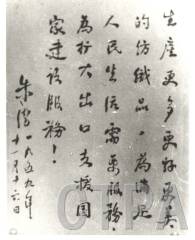 生產更多更好更美
的紡織品，為满足
人民生活需要服務，
為扩大出口支援國
家建設服務！
朱德 一九五九年
十一月十六日